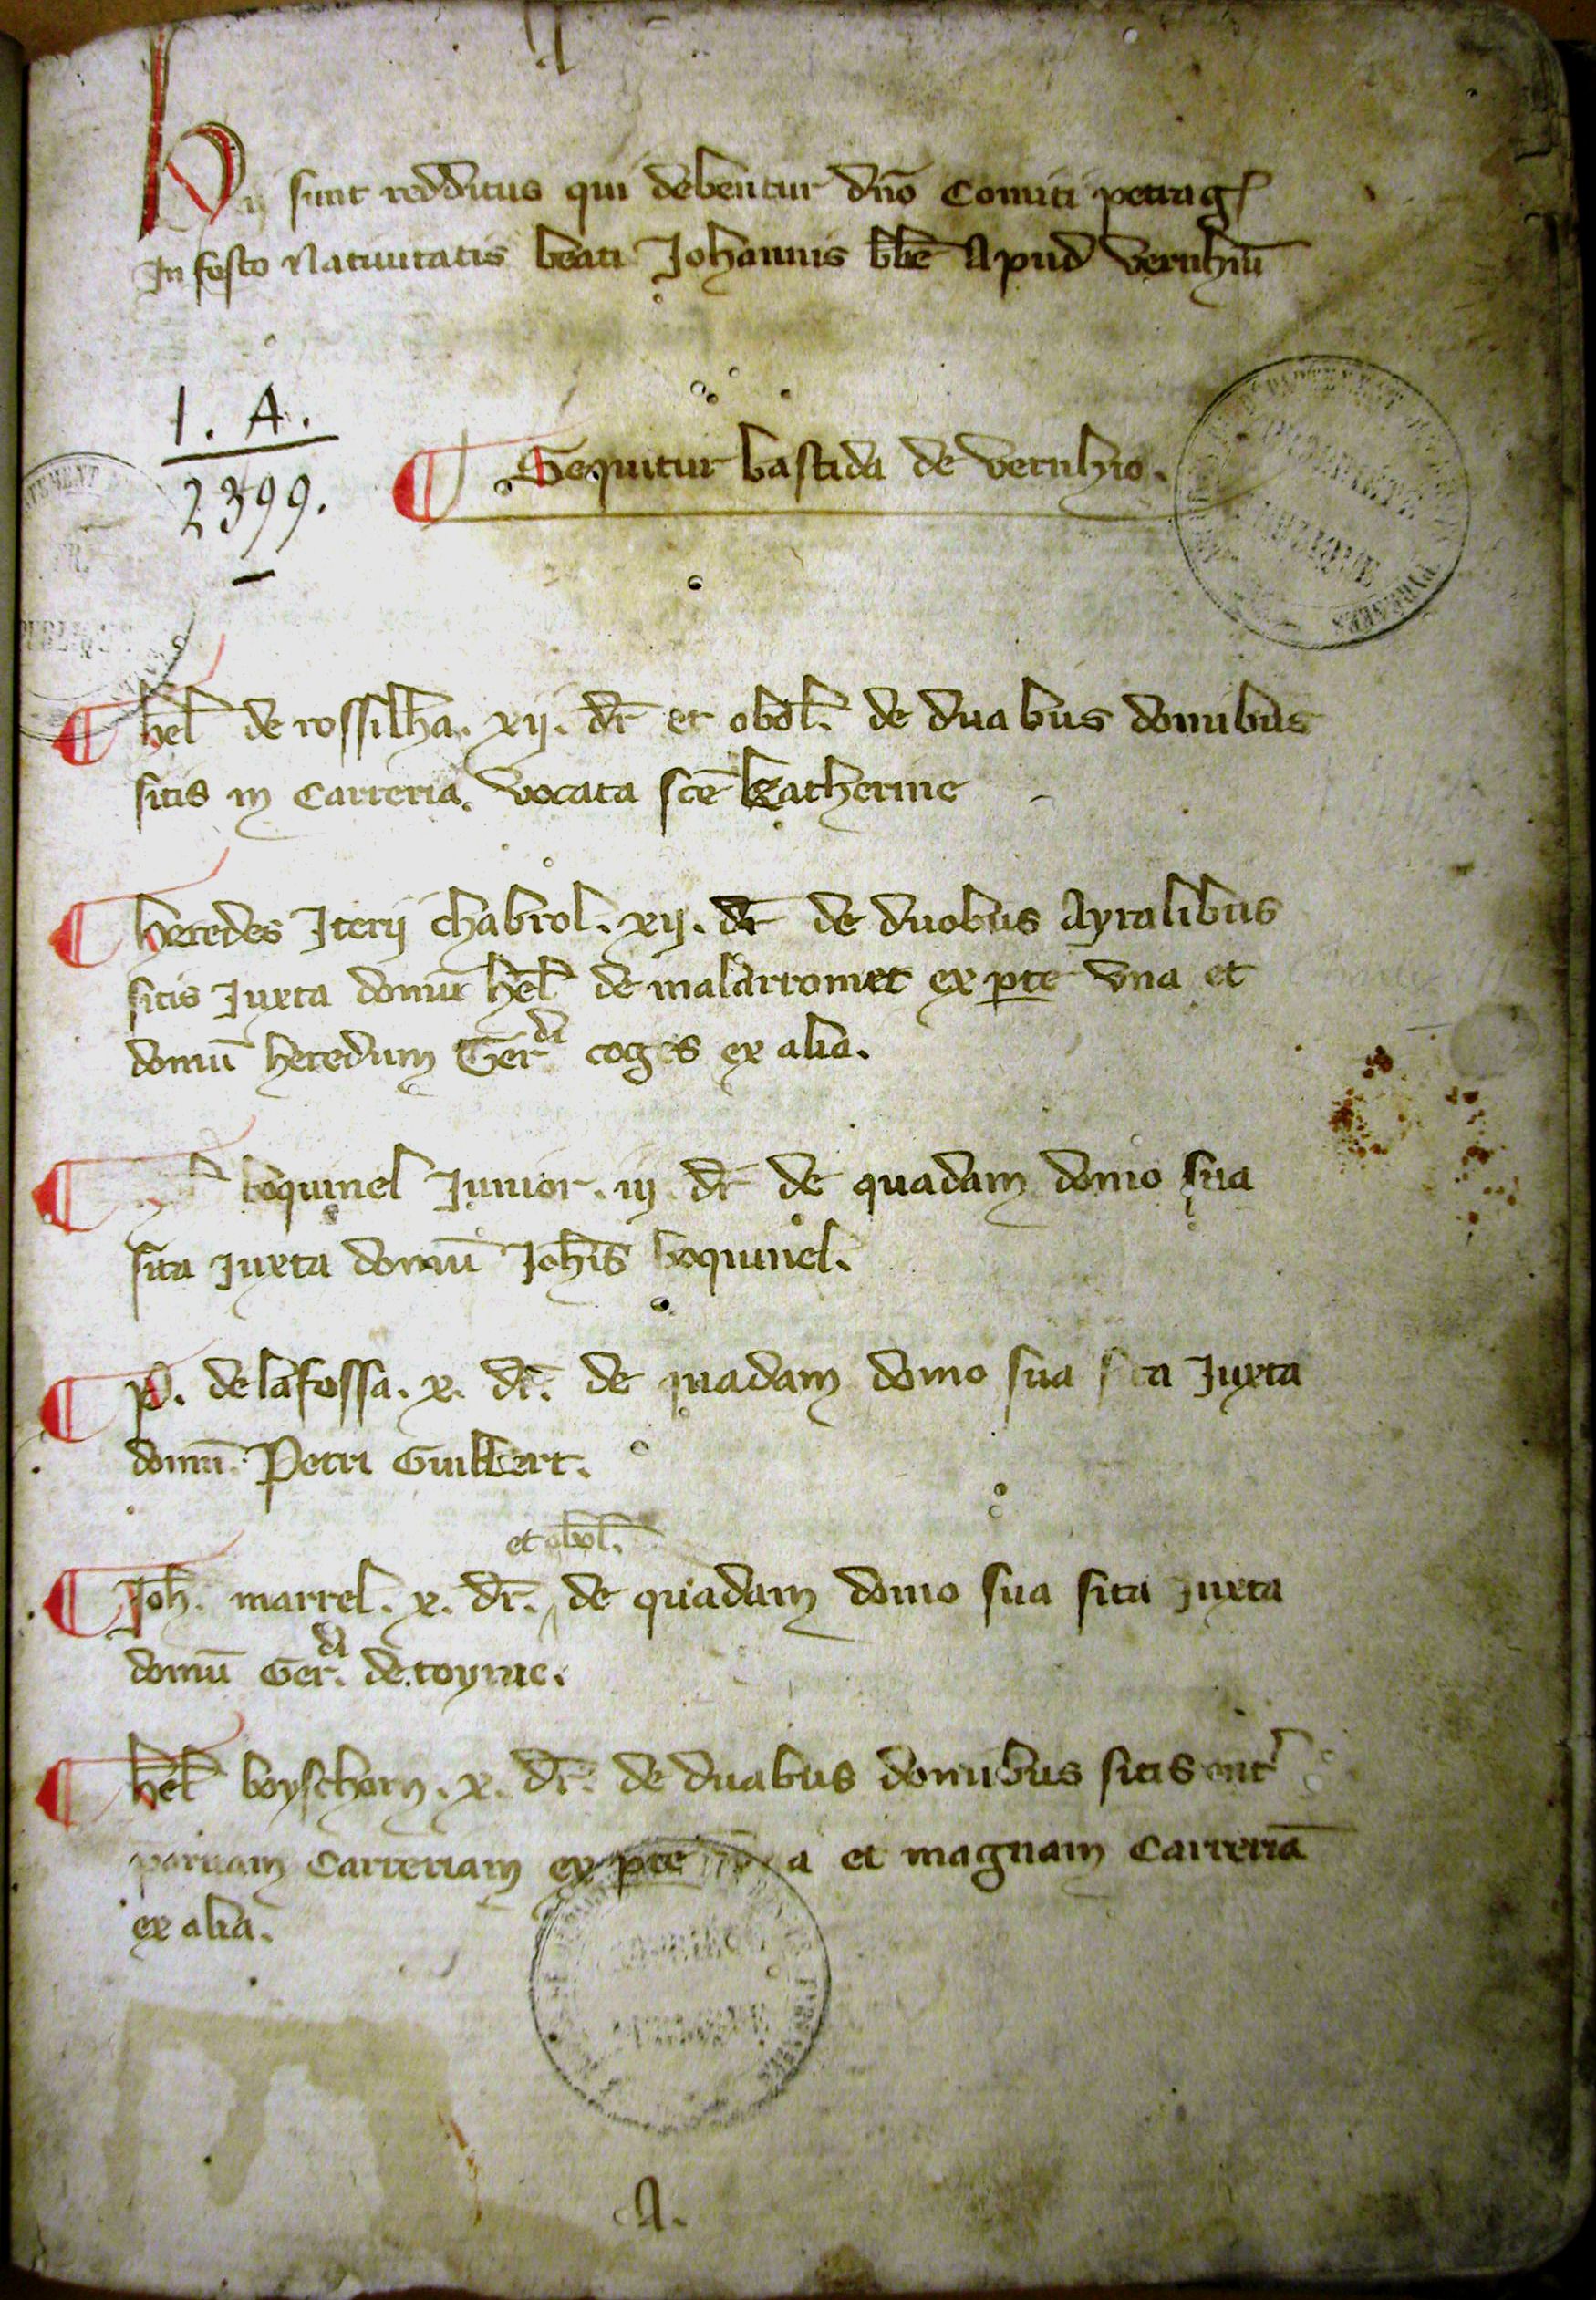 Hij sunt redditus qui debentur dño Comiti petrag
In festo Natiuitatis beati Johannis bbē Apud vernhiū
1. A.
2399.
Sequitur bastida de vernhio.
hel de rossilha. xij. dr̄ et obol. de duabus domibus
sitis in Carreria. vocata sc̄e katherine
heredes Iterij chabrol. xij. dr̄ de duobus Ayralibus
sitis Juxta domū hel de malarromet ex pte vna et
domū heredum Gerdi coges ex alia.
boquinel Junior. iij. dr̄ de quadam domo sua
sita Juxta domū Joh̄is boquinel.
p. de lafossa. x. dr̄. de quadam domo sua sita Juxta
domū Petri Guilbert.
et obol.
Joh. marrel. x. dr̄. de quadam domo sua sita Juxta
domū Ger.di de toyrac.
hel boyschorn. x. dr̄. de duabus domibus sitis int
paruam Carreriam ex pte a et magnam Carreriā
ex alia.
A.